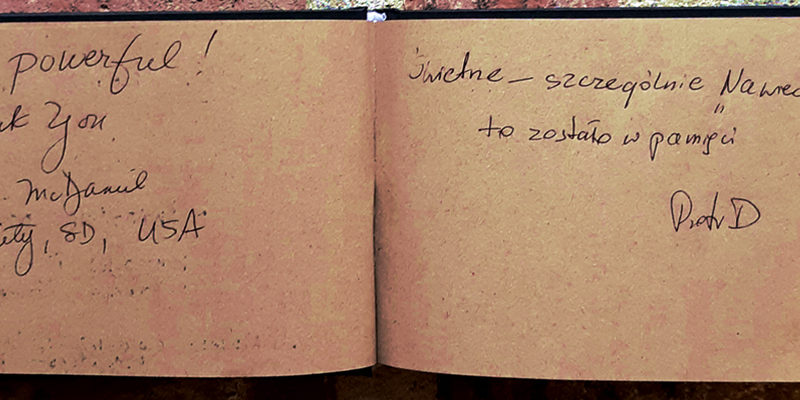 powerful!
You
McDaniel
SD, USA
Świetne – szczególnie "Nawec
to zostało w pamięci
Piotr D